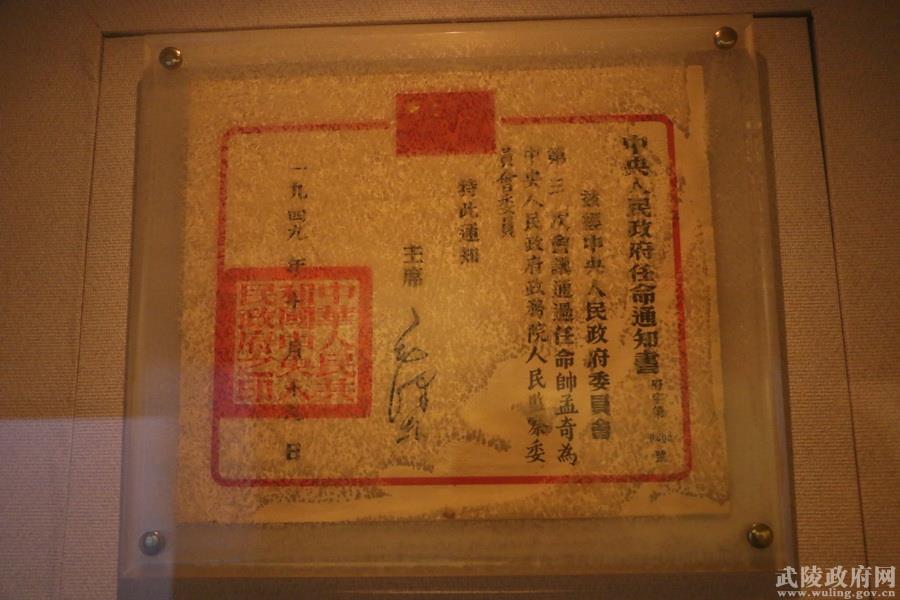 中央人民政府任命通知書
府字第
號
茲經中央人民政府委員會
第三次會議通過任命帥孟奇為
中央人民政府政務院人民監察委
員會委員
特此通知
主席 毛澤東
一九四九年十月十九日
中華人民共
和國中央人
民政府之印
武陵政府网
www.wuling.gov.cn